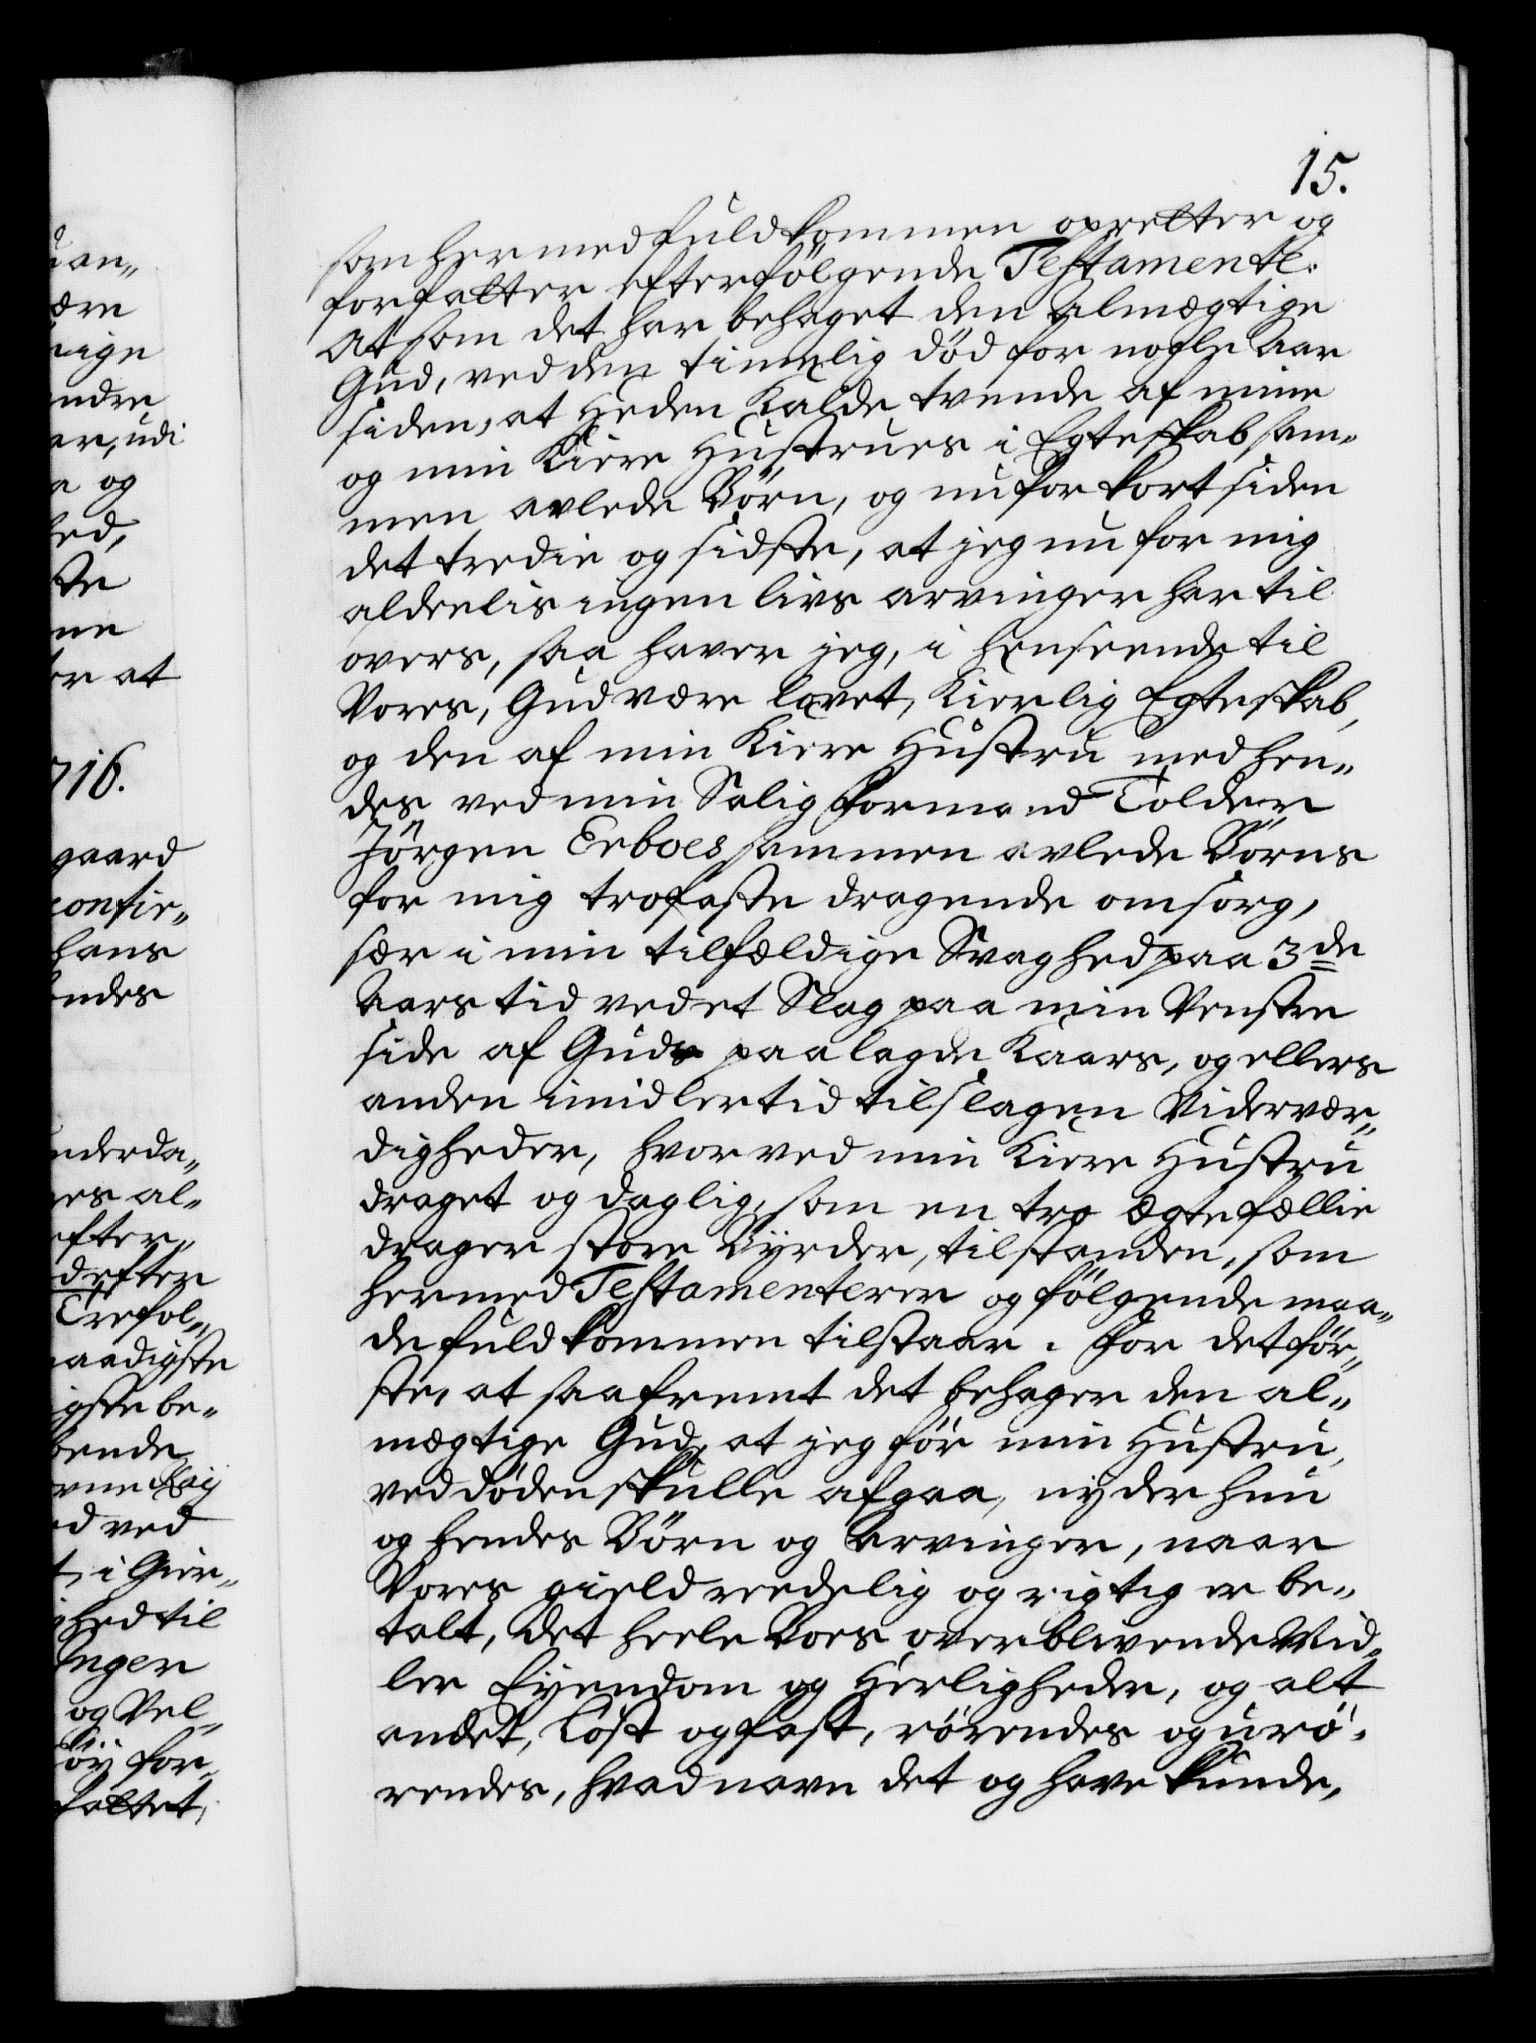 15.
som hermed fuldkommen opretter og
forfatter efterfölgende Testamente.
At som det har behaget den Almægtige
Gud, ved den timelig död for nogle Aar
siden, at Heden Kalde tvende af mine
og min Kiere Hustrues i Egteskab sam„
men avlede Börn, og nu for kort siden
det tredie og sidste, at jeg nu for mig
aldeelis ingen livs arvinger har til
overs, saa haver jeg, i henseende til
Vores, Gud være lovet, Kierlig Egteskab,
og den af min Kiere Hustru med hen„
des ved min Salig formand Tolder
Jörgen Erboes sammen avlede Börns
for mig trofaste dragende omsorg,
sær i min tilfældige Svaghed paa 3de
Aars tid ved et Slag paa min Venstre
side af Guds paalagde Kaars, og ellers
anden imidlertid tilslagen Vidervær„
digheder, hvorved min Kiere Hustru
draget og daglig, som en tro ægtefællie
drager store Byrder, tilstanden, som
hermed Testamenterer og fölgende maa„
de fuldkommen tilstaar. For detför„
ste, at saafremt det behager den al„
mægtige Gud, at jeg för min Hustru,
ved döden skulle afgaa, nyder hun
og hendes Börn og Arvinger, naar
Vores gield reedelig og rigtig er be„
talt, det heele Boes overblivende Mid„
ler Eyendom og Herligheder, og alt
andet, löst og fast, rörendes og urö„
rendes, hvad navn det og have kunde,
uan„
ære
nige
endre
ar, udi
a og
hed,
ste
ne
er at
716.
gaard
confir„
hans
endes
nderda„
es al„
efter„
defter
Trefol„
aadigste
igste be„
bende
ed ved
t, i Gier„
hed til
nger
og Vel„
öy for„
fattet,